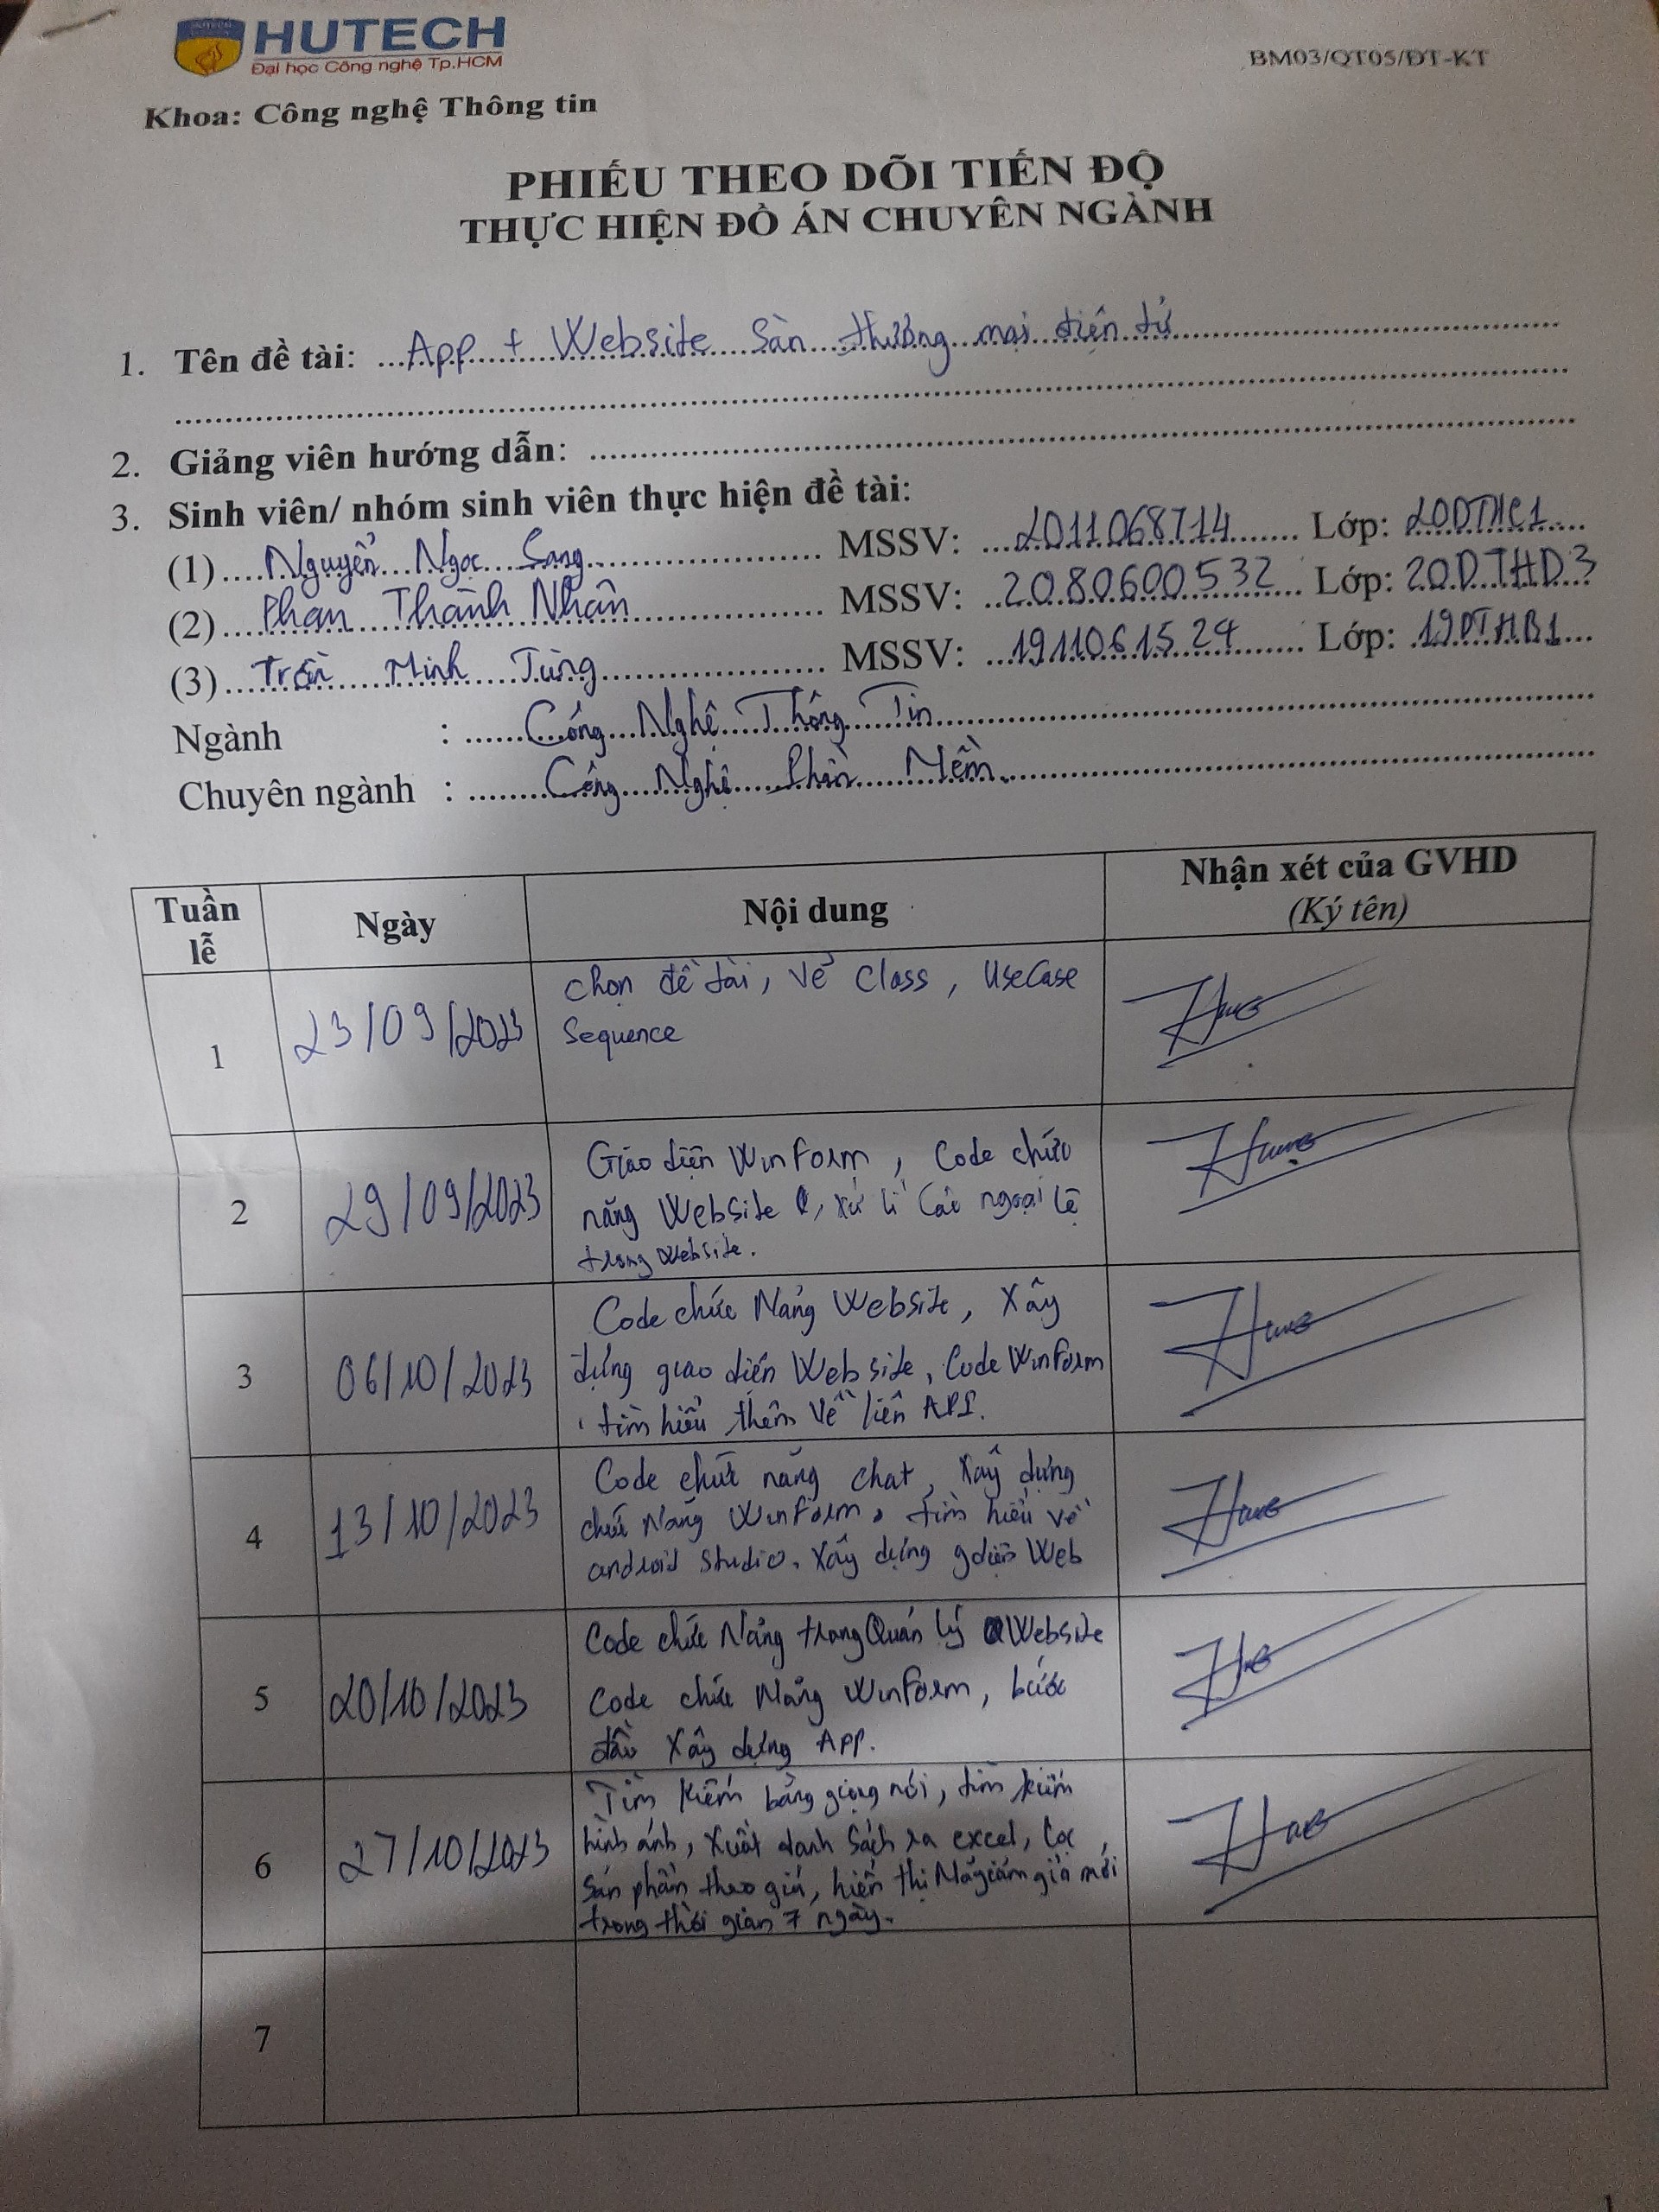 HUTECH
Đại học Công nghệ Tp.HCM
BM03/QT05/ĐT-KT
Khoa: Công nghệ Thông tin
PHIẾU THEO DÕI TIẾN ĐỘ
THỰC HIỆN ĐỒ ÁN CHUYÊN NGÀNH
1. Tên đề tài: App + Website sàn thương mại điện tử
2. Giảng viên hướng dẫn:
3. Sinh viên/ nhóm sinh viên thực hiện đề tài:
(1) Nguyễn Ngọc Sang MSSV: 2011068714 Lớp: 20DTHC1
(2) Phan Thành Nhân MSSV: 2080600532 Lớp: 20DTHD3
(3) Trần Minh Tùng MSSV: 1911061524 Lớp: 19DTHB1
Ngành : Công Nghệ Thông Tin
Chuyên ngành : Công Nghệ Phần Mềm.
Tuần lễ Ngày Nội dung Nhận xét của GVHD (Ký tên)
1 23/09/2023 Chọn đề tài, vẽ Class, UseCase
Sequence
2 29/09/2023 Giao diện Winform, Code chức
năng Website, xử lí các ngoại lệ
trong website.
3 06/10/2023 Code chức Năng Website, Xây
dựng giao diện Website, Code Winform
, tìm hiểu thêm về liên API.
4 13/10/2023 Code chức năng chat, Xây dựng
chức Năng Winform, tìm hiểu về
android studio, Xây dựng gdiện Web
5 20/10/2023 Code chức Năng trang Quản lý Website
Code chức Năng Winform, bước
đầu Xây dựng App.
6 27/10/2023 Tìm kiếm bằng giọng nói, tìm kiếm
hình ảnh, Xuất danh sách ra excel, Lọc
sản phẩm theo giá, hiển thị Mã giảm giá mới
trong thời gian 7 ngày.
7